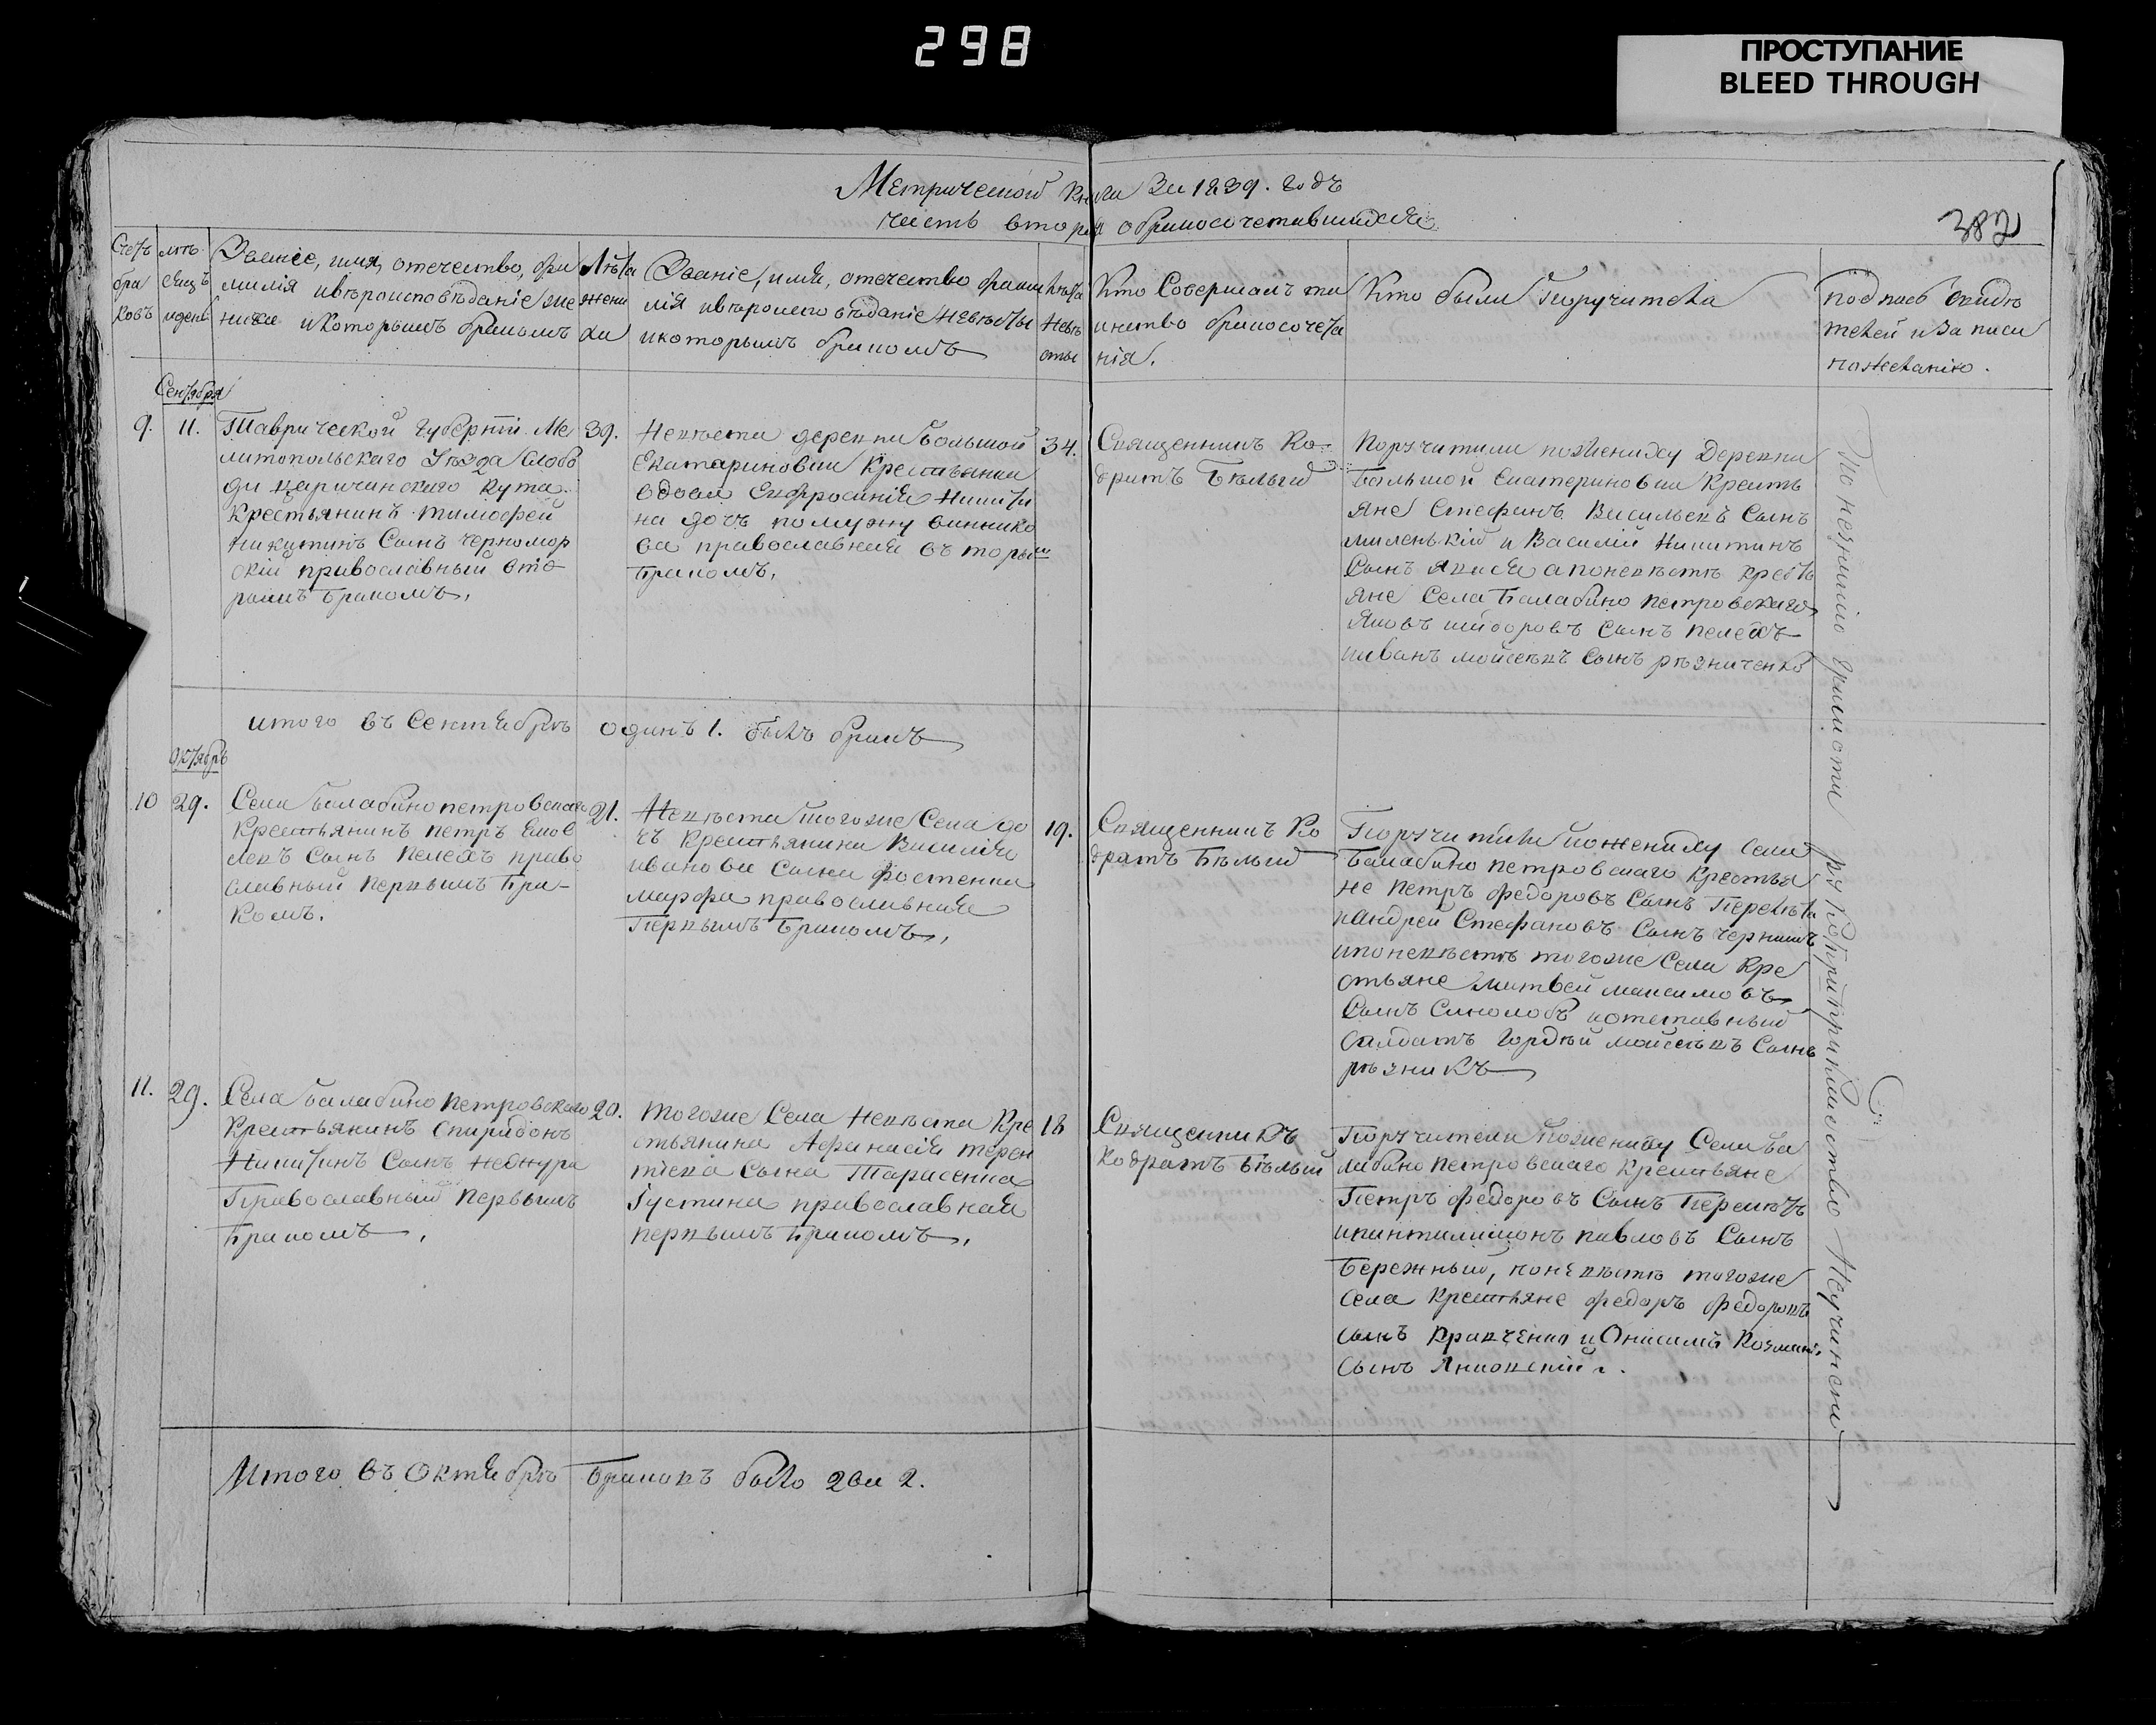 298
ПРОСТУПАНИЕ
BLEED THROUGH
Метрической книги За 1839. годъ
часть вторая о бракосочетавшихся
382
Счетъ
бра
ковъ
мѣ
сяцъ
и день
Званіе, имя, отечество, фа
милія и вѣроисповѣданіе же
ниха и которымъ бракомъ
Лѣта
жени
ха
Званіе, имя, отечество фами
лія и вѣроисповѣданіе невѣсты
и которымъ бракомъ
Лѣта
невѣ
сты
Кто Совершалъ та
инство бракосочета
нія.
Кто были Поручители
подпись свидѣ
телей и записи
по желанію.
Сентября
9.
11.
Таврической Губерніи Ме
литопольскаго Уѣзда Слобо
ди царичанскаго кута
Крестьянинъ Тимофей
Никитинъ Сынъ Черномор
скій православный вто
рымъ бракомъ,
39.
Невѣста деревни большой
Екатериновки Крестьянка
вдова Евфросинія Никити
на дочь по мужу винико
ва православная вторым
бракомъ,
34.
Священникъ Ко
дратъ Бѣлый
Поручители по жениху Деревни
Большой Екатериновки Крестъ
яне Стефанъ Васильевъ Сынъ
миленькій и Василій Никитинъ
Сынъ а по невѣстѣ кресть
яне Села Балабино петровскаго
Яковъ сидоровъ сынъ пелехъ
и иванъ мойсеевъ сынъ рѣзниченко
итого въ Сентябрѣ одинъ 1. былъ бракъ
Октябрь
10
29.
Села балабино петровскаго
Крестьянинъ петръ Яков
левъ Сынъ Пелехъ право
славный первымъ бра-
комъ.
21.
Невѣста тогоже Села до
чь крестьянина Василія
иванова Сына Фостенка
марфа православная
Первымъ бракомъ,
19.
Священникъ Ко
дратъ Бѣлый
Поручители по жениху Села
Балабино петровскаго Крестья
не петръ федоровъ Сынъ Перекѣта
и Андрей Стефановъ Сынъ чернышъ
и по невѣстѣ тогоже Села Кре
стьяне матвей максимовъ
Сынъ Синолобъ и отставный
салдатъ гордѣй мойсеевъ Сынъ
рѣзникъ
11.
29.
Села балабино петровскаго
Крестьянинъ Спиридонъ
Никитинъ Сынъ
Православный первымъ
бракомъ,
20.
тогоже Села Невѣста Кре
стьянина Афанасія терен
тіева Сына Тарасенка
Густина православная
первымъ бракомъ,
18
Священникъ
Кодратъ Бѣлый
Поручители по жениху Села ба
лабино петровскаго Крестьяне
Петръ федоровъ Сынъ
и пантилимонъ павловъ Сынъ
Бережный, по невѣстѣ тогоже
Села крестьяне федоръ федоровъ
сынъ кравченко и Онисимъ Козмин
сынъ
Итого въ Октябрѣ браковъ было два 2.
По незнанію грамоти